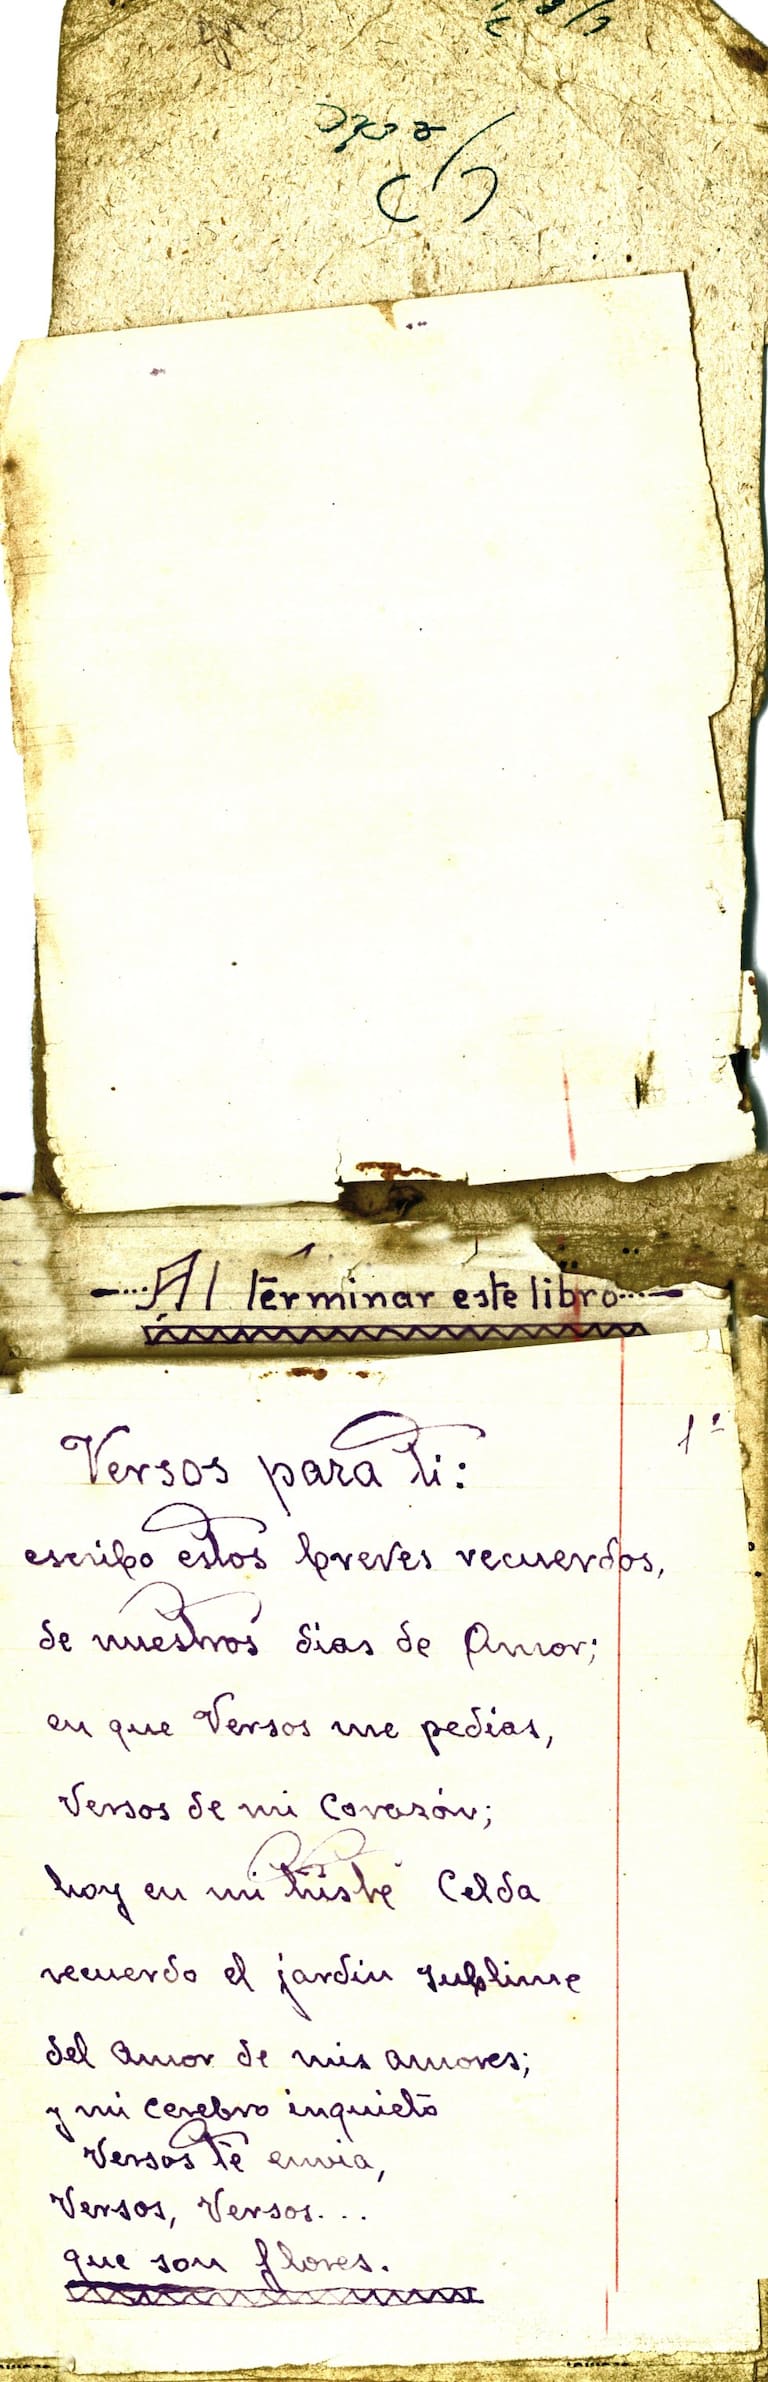 Al terminar este libro
1ª
Versos para ti:
escribo estos breves recuerdos,
de nuestros dias de Amor;
en que Versos me pedias,
Versos de mi Corazón;
hoy en mi triste Celda
recuerdo el jardin sublime
del amor de mis amores;
y mi cerebro inquieto
Versos te envia,
Versos, Versos...
que son flores.